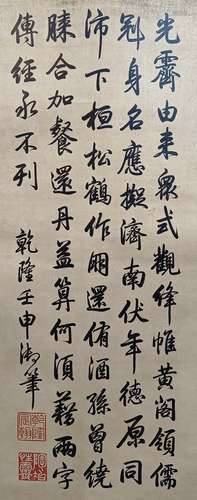 光霽由來眾式觀絳帷黃閣領儒
冠身名應擬濟南伏年德原同
沛下桓松鶴作朋還侑酒孫曾繞
膝合加餐還丹益算何須藉兩字
傳經永不刊 乾隆壬申御筆